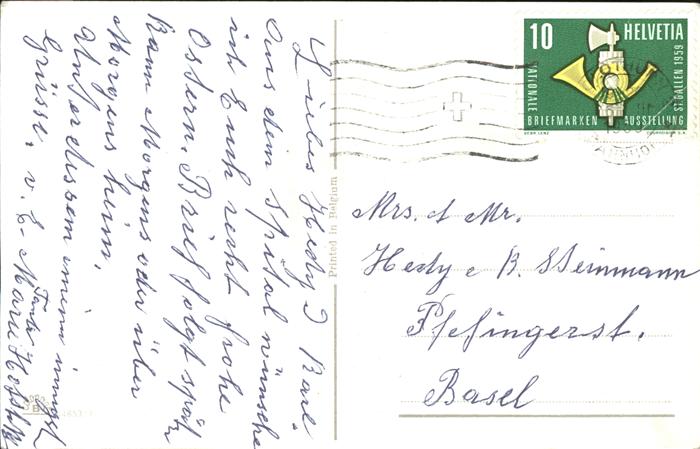 Liebes Hedy & Karl.
Aus dem Spital wünsche
ich Euch recht frohe
Ostern. Brief folgt spät.
Kann Morgens oder über
Morgens heim.
Unterdessen innigst
Grüsse. v. E-
Tante
Marie
Printed in Belgium
10 HELVETIA
NATIONALE
BRIEFMARKEN AUSSTELLUNG
ST. GALLEN 1959
COURVOISIER S.A.
Mrs. & Mr.
Hedy & K. Steinmann
Pfefingerst.
Basel